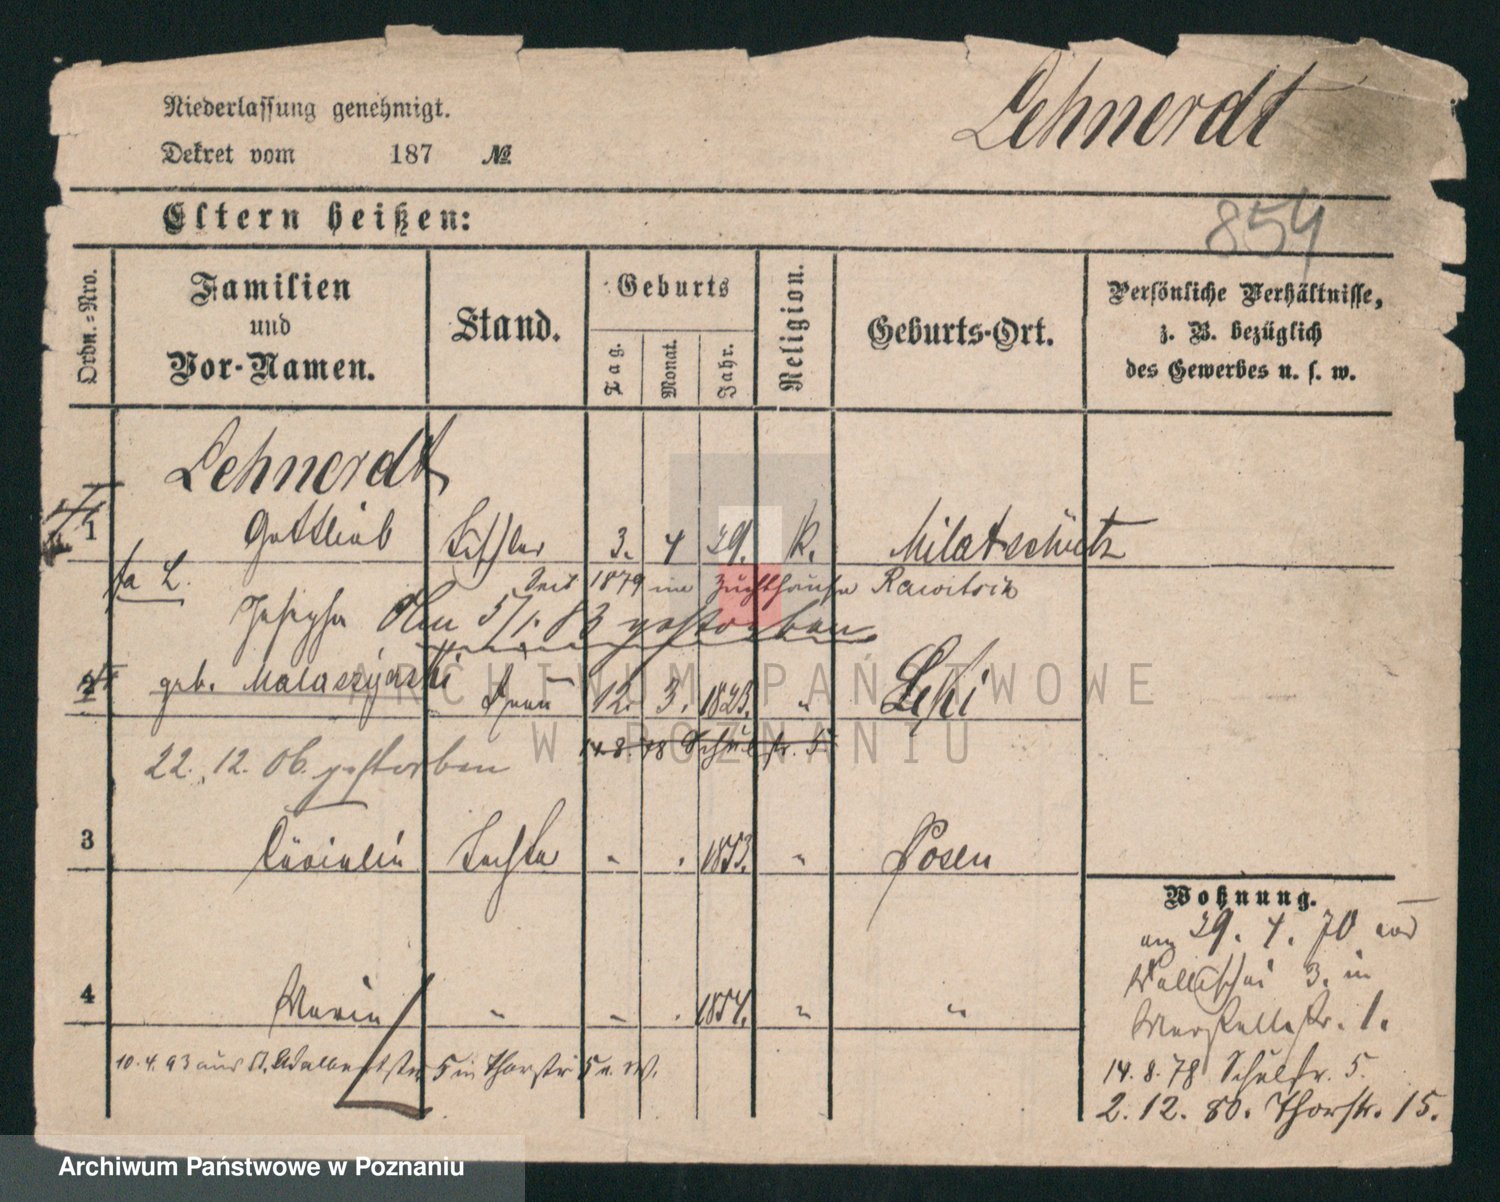 Niederlassung genehmigt.
Lehnerdt
Dekret vom 187 №
854
Eltern heißen:
Ordn.=Nro.
Familien und Vor-Namen.
Stand.
Geburts
Tag.
Monat.
Jahr.
Religion.
Geburts-Ort.
Persönliche Verhältnisse,
z. B. bezüglich
des Gewerbes u. s. w.
Lehnerdt
1 Gottlieb Tischler 3. 4 29. k. Milatschütz
Seit 1879 im Zuchthause Rawitsch
Josepha Am 5/1. 83 gestorben
2 geb. Malaszynski Frau 12. 3. 1823. " Lęki
14.8.78 Schulstr. 5
22. 12. 06. gestorben
3 Cäcielie Tochter " " 1853. " Posen
4 Marie " " " 1854. " "
10.4.93 aus St. Adalbertstr. 5 in Thorstr. 5 a. W.
Wohnung.
am 29. 4. 70 von
Wallischei 3. in
14.8.78 Schulstr. 5.
2.12.80. Thorstr. 15.
ARCHIWUM PAŃSTWOWE
W POZNANIU
Archiwum Państwowe w Poznaniu